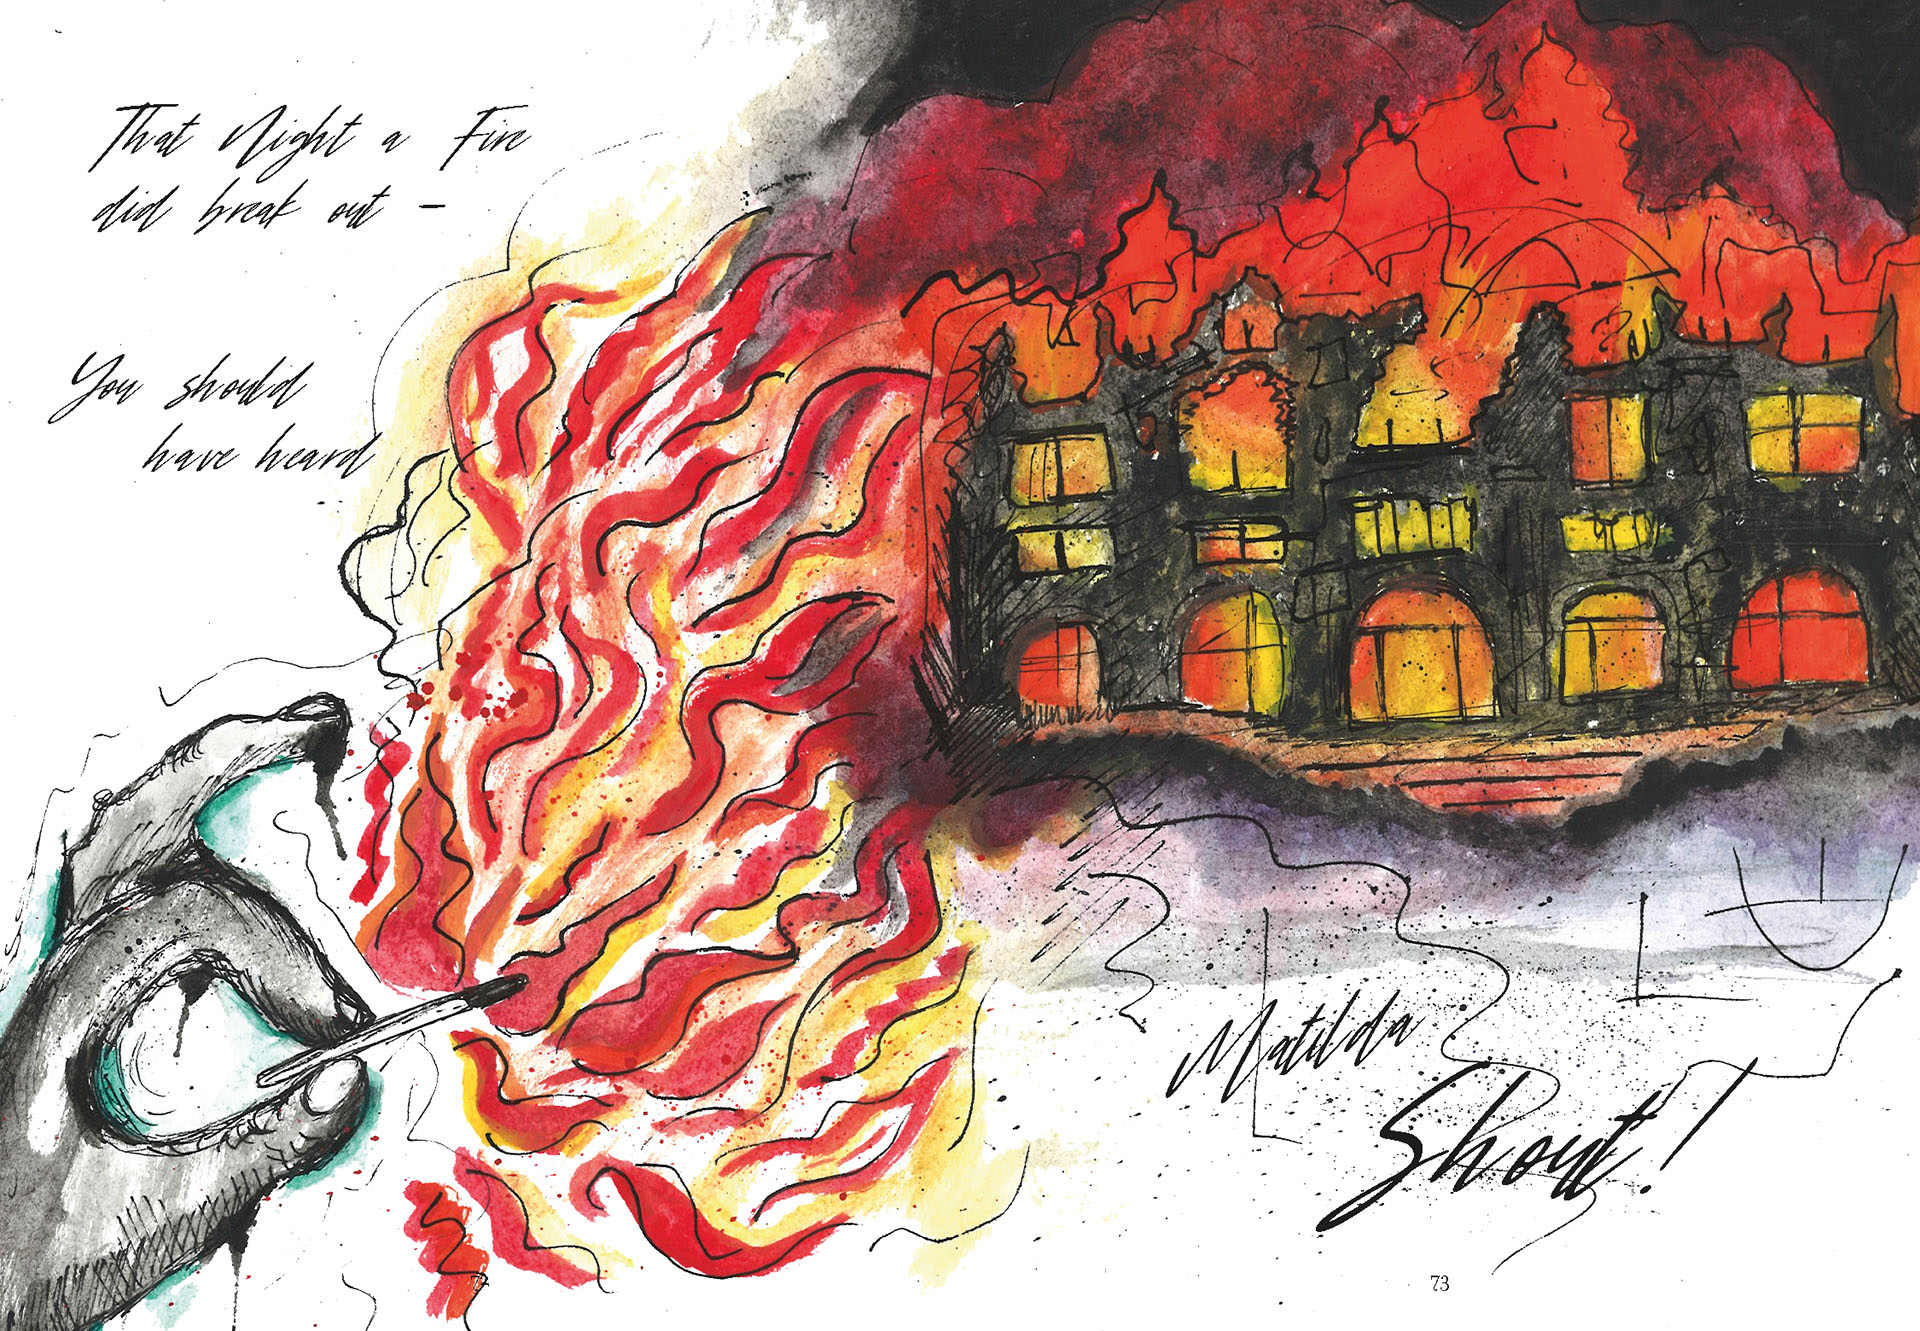 That Night a Fire
did break out –
You should
have heard
Matilda
Shout!
73